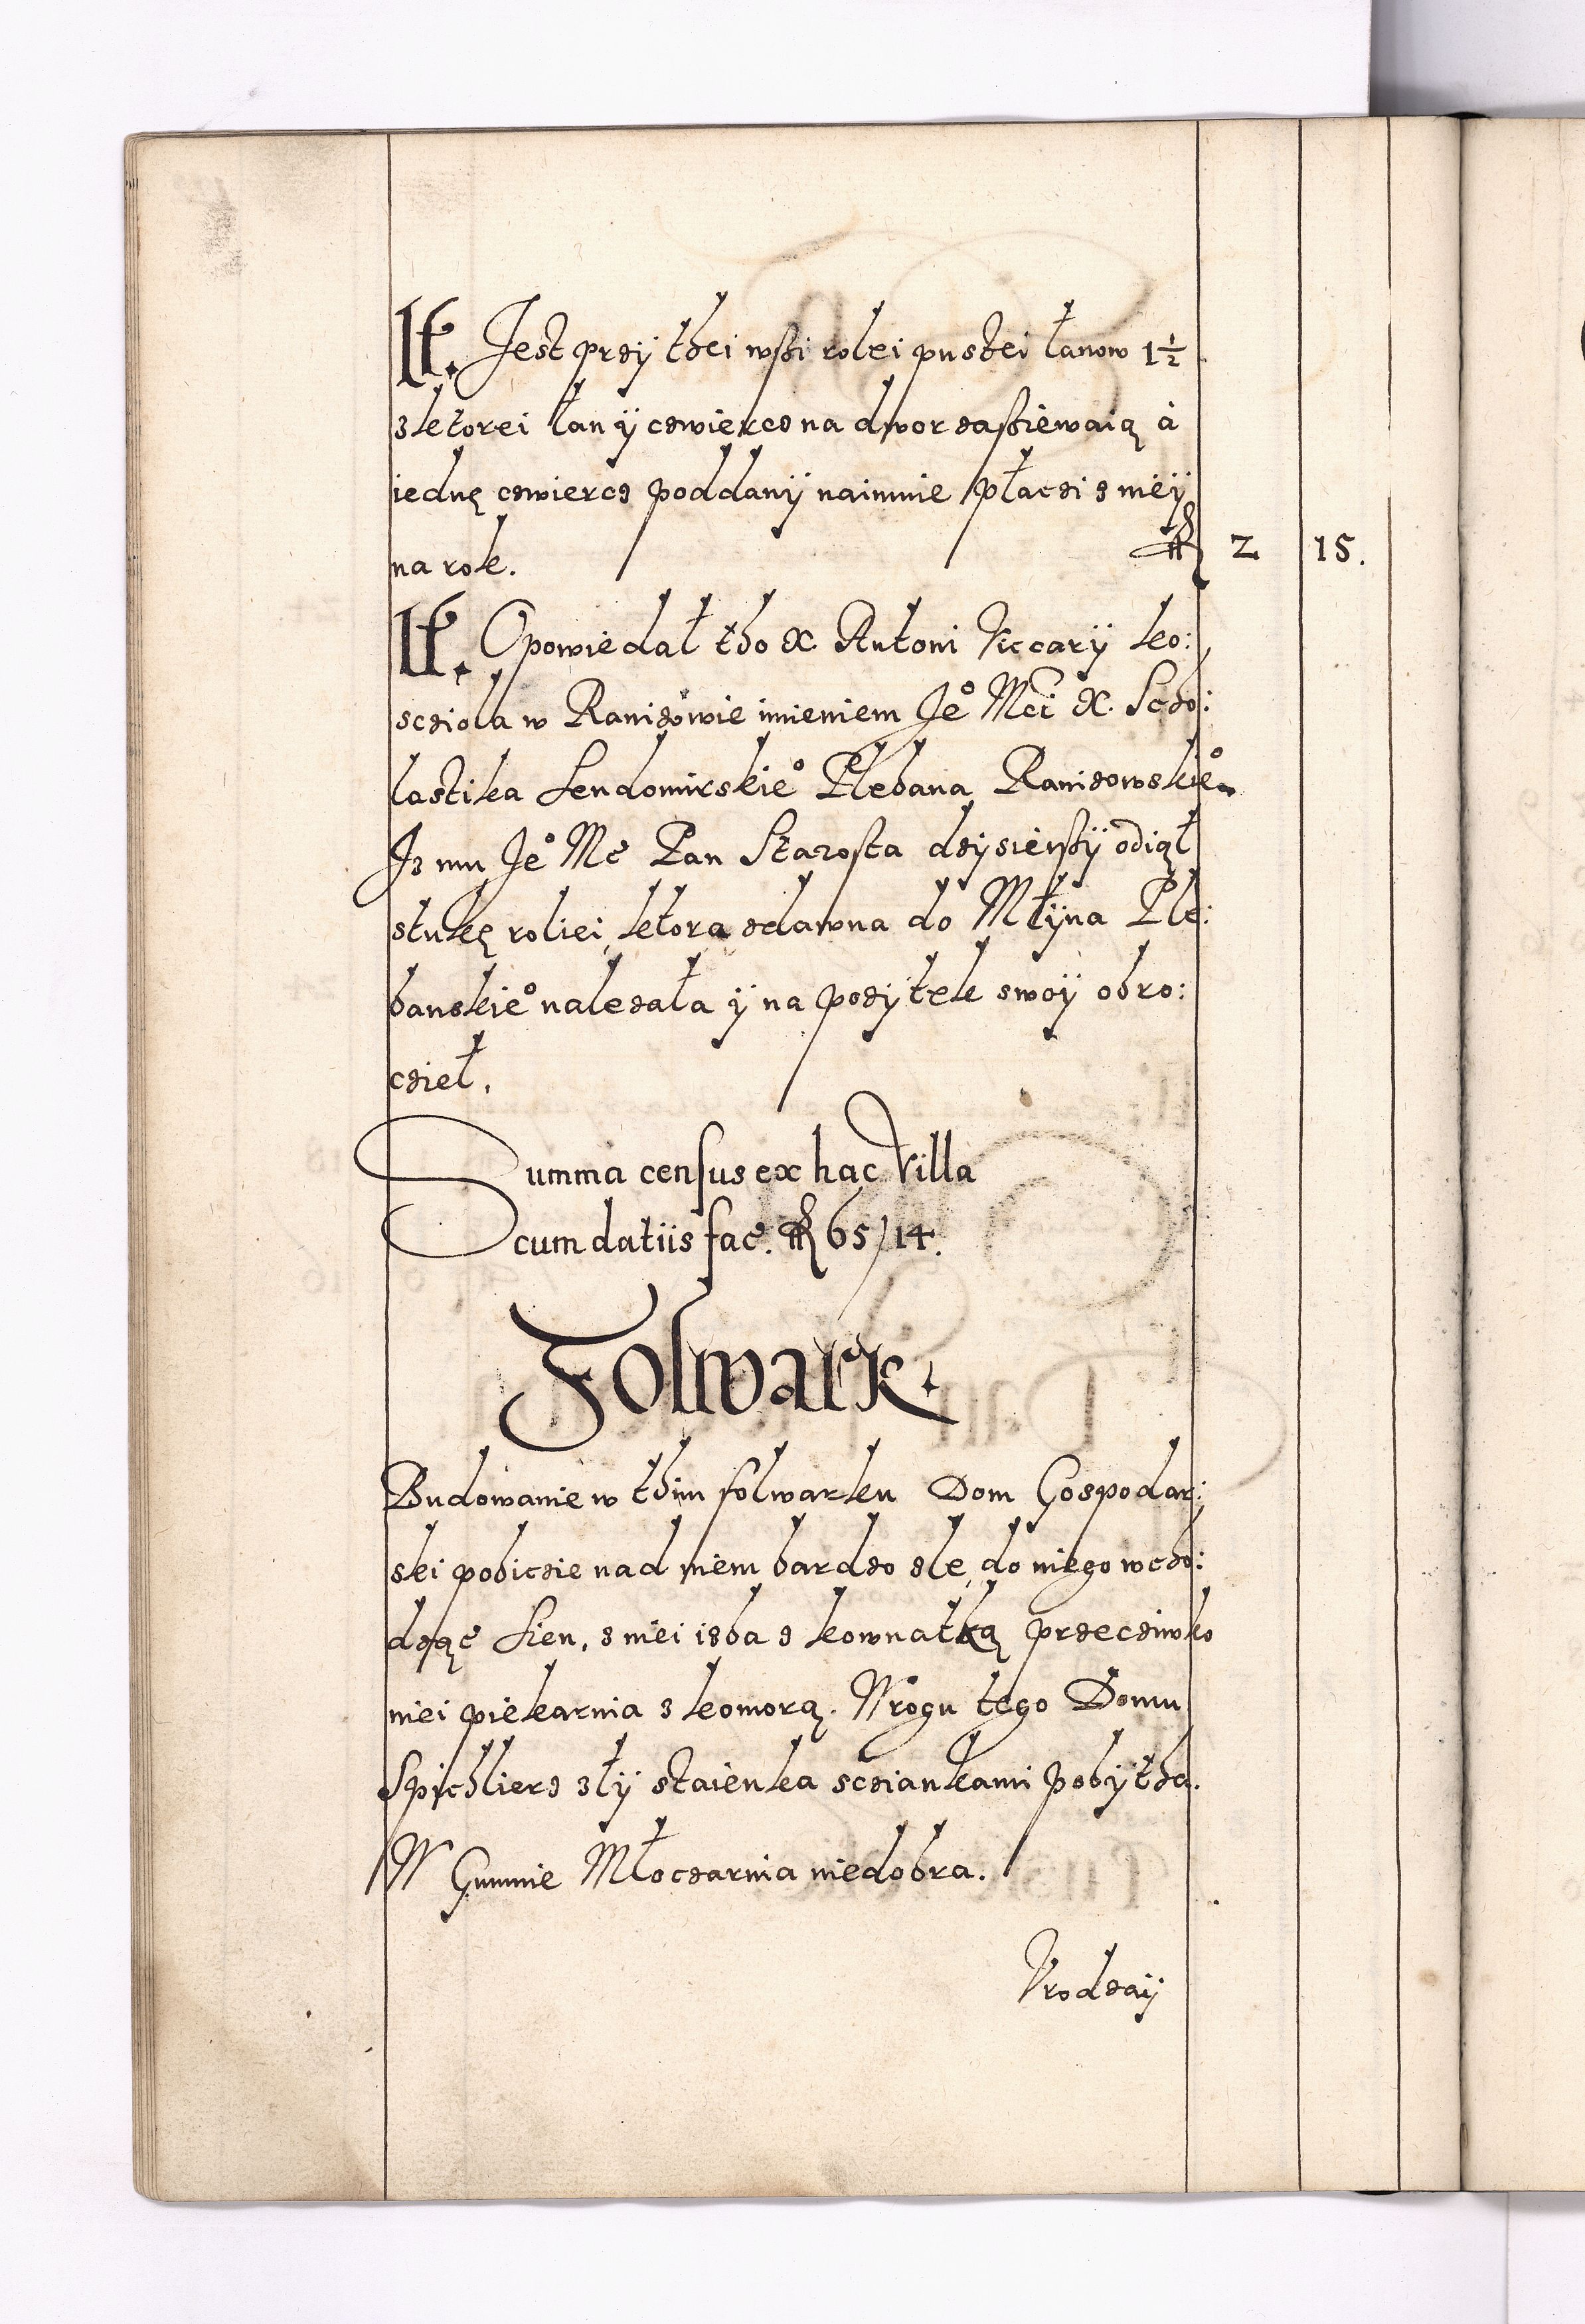 It. Jest przy thei wsi rolei pustei łanow 1½
z ktorei łan y czwiercz na dwor zasiewaią à
iednę czwiercz poddany naimuie płaczi z niey
na rok. fl 2 15.
It. Opowiedał tho X Antoni Viccary ko:
scziola w Ranizowie imieniem Je° Mci X. Scho:
lastika Sendomirskie° Plebana Ranizowskie°
Iz mu Je° Mc Pan Starosta dzysieiszy odiął
stukę roliei ktora zdawna do Młyna Ple:
banskie° nalezała y na pozytek swoy obro:
cziel.
Summa census ex hac Villa
cum datiis fac. fl 65/14.
Folwark.
Budowanie w thim folwarku Dom Gospodar:
ski pobiczie nad niem bardzo zle, do niego wcho:
dząc Sien, z niei izba z kownatką przecziwko
niei piekarnia z komorą. W rogu tego Domu
Spichlierz zły staienka scziankami pobytha.
W Gumnie Młoczarnia niedobra.
Vrodzay